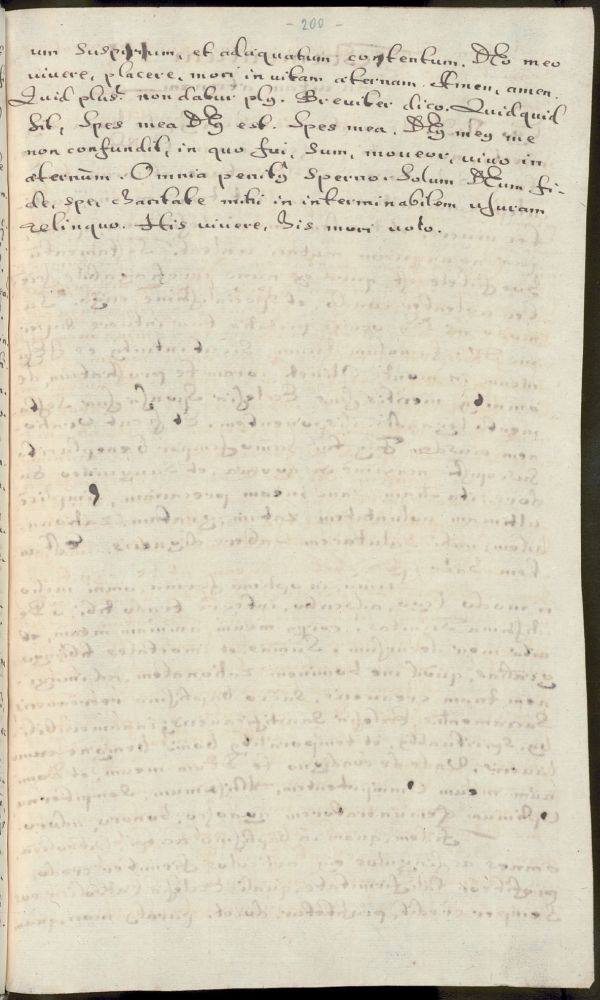 - 200 -
um suspirium, et adæquatum contentum, Deo meo
vivere, placere, mori in vitam æternam. Amen, amen.
Quid plus? non dabur plꝰ. Breviter dico. Quidquid
sit, Spes mea Dꝰ est. Spes mea, Dꝰ meꝰ me
non confundit, in quo fui, sum, moveor, vivo in
æternùm. Omnia penitꝰ sperno. Solum Deum fi-
de, spe, charitate mihi in interminabilem usuram
relinquo. His vivere, his mori volo.